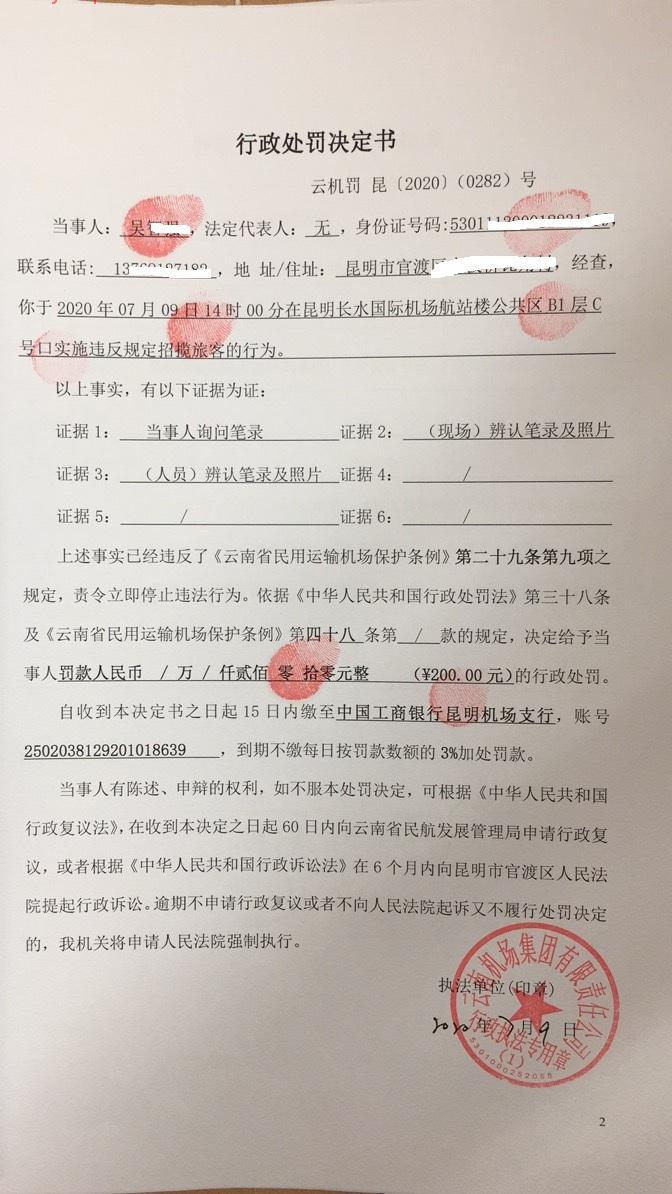 行政处罚决定书
云机罚 昆〔2020〕(0282)号
当事人: 吴 ,法定代表人: 无 ,身份证号码:53011
联系电话: ,地 址/住址: 昆明市官渡 ,经查,
你于 2020 年 07 月 09 日 14 时 00 分在昆明长水国际机场航站楼公共区 B1 层 C
号口实施违反规定招揽旅客的行为。
以上事实,有以下证据为证:
证据 1: 当事人询问笔录 证据 2: (现场)辨认笔录及照片
证据 3: (人员)辨认笔录及照片 证据 4: /
证据 5: / 证据 6: /
上述事实已经违反了《云南省民用运输机场保护条例》第二十九条第九项之
规定,责令立即停止违法行为。依据《中华人民共和国行政处罚法》第三十八条
及《云南省民用运输机场保护条例》第四十八 条第 / 款的规定,决定给予当
事人罚款人民币 / 万 / 仟贰佰 零 拾零元整 (¥200.00 元)的行政处罚。
自收到本决定书之日起 15 日内缴至中国工商银行昆明机场支行,账号
2502038129201018639 ,到期不缴每日按罚款数额的 3%加处罚款。
当事人有陈述、申辩的权利,如不服本处罚决定,可根据《中华人民共和国
行政复议法》,在收到本决定之日起 60 日内向云南省民航发展管理局申请行政复
议,或者根据《中华人民共和国行政诉讼法》在 6 个月内向昆明市官渡区人民法
院提起行政诉讼。逾期不申请行政复议或者不向人民法院起诉又不履行处罚决定
的,我机关将申请人民法院强制执行。
云南机场集团有限责任公司
执法单位(印章)
2020 年 7 月 9 日
行政执法专用章
(1)
5301000252065
2